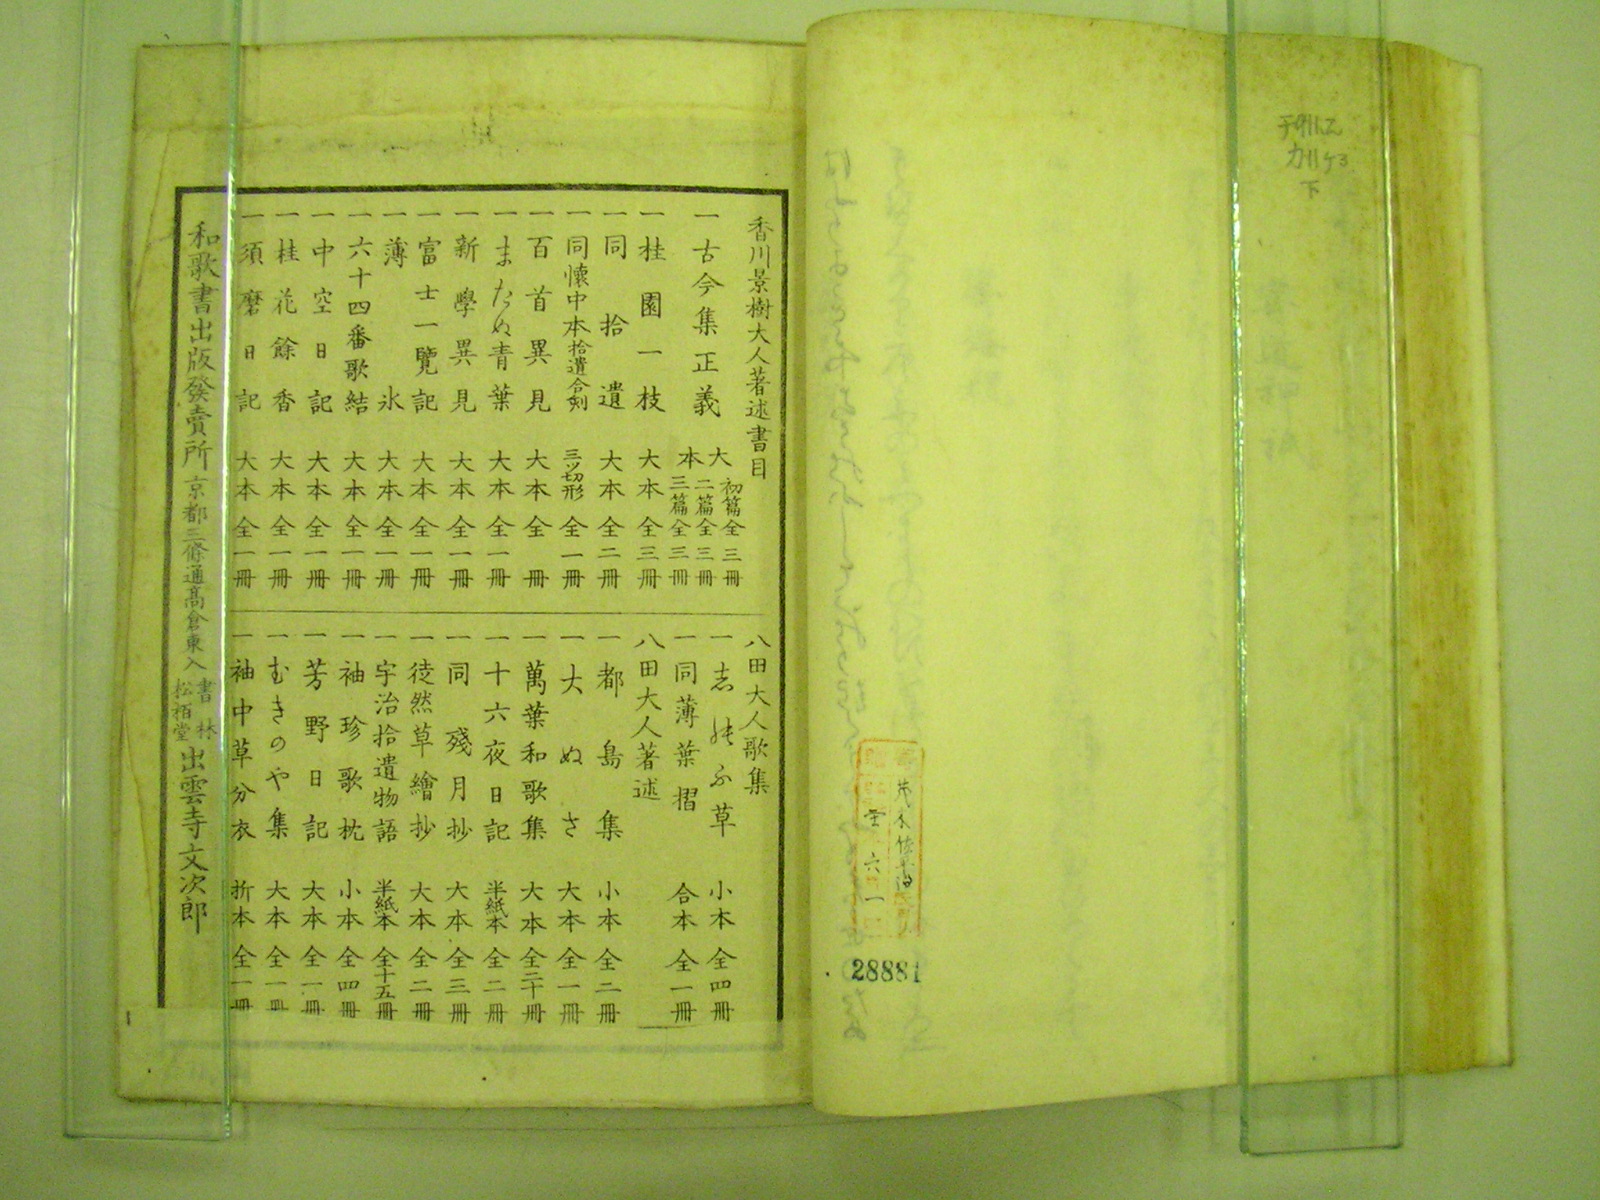 下
28881
香川景樹大人著述書目
一古今集正義 大本 初篇全三冊 二篇全三冊 三篇全三冊
一桂園一枝 大本全三冊
一同拾遺 大本全二冊
一同懐中本拾遺合刻 三ツ切形全一冊
一百首異見 大本全
一またぬ青葉 大本全一冊
一新學異見 大本全一冊
一富士一覽記 大本全一冊
一薄氷 大本全一冊
一六十四番歌結 大本全一冊
一中空日記 大本全一冊
一桂花餘香 大本全一冊
一須磨日記 大本全一冊
八田大人歌集
一志のふ草 小本全四冊
一同薄葉摺 合本全一冊
八田大人著述
一都島集 小本全二冊
一大ぬさ 大本全一冊
一萬葉和歌集 大本全二十冊
一十六夜日記 半紙本全二冊
一同殘月抄 大本全三冊
一徒然草繪抄 大本全二冊
一宇治拾遺物語 半紙本全十五冊
一袖珍歌枕 小本全四冊
一芳野日記 大本全一冊
一むきのや集 大本全一冊
一袖中草分衣 折本全一冊
和歌書出版發賣所 京都三條通髙倉東入 書林 松栢堂 出雲寺文次郎